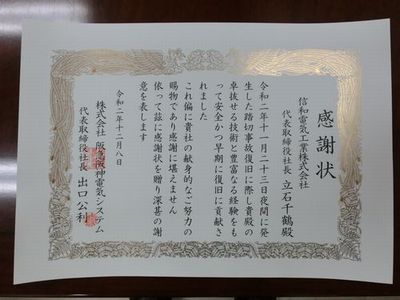 感謝状
信和電気工業株式会社
代表取締役社長 立石千鶴殿
令和二年十一月二十三日夜間に発
生した踏切事故復旧に際し貴殿の
卓抜せる技術と豊富なる経験をも
って安全かつ早期に復旧に貢献さ
れました
これ偏に貴社の献身的なご努力の
賜物であり感謝に堪えません
依って茲に感謝状を贈り深甚の謝
意を表します
令和二年十二月八日
株式会社 阪急阪神電気システム
代表取締役社長 出口公利